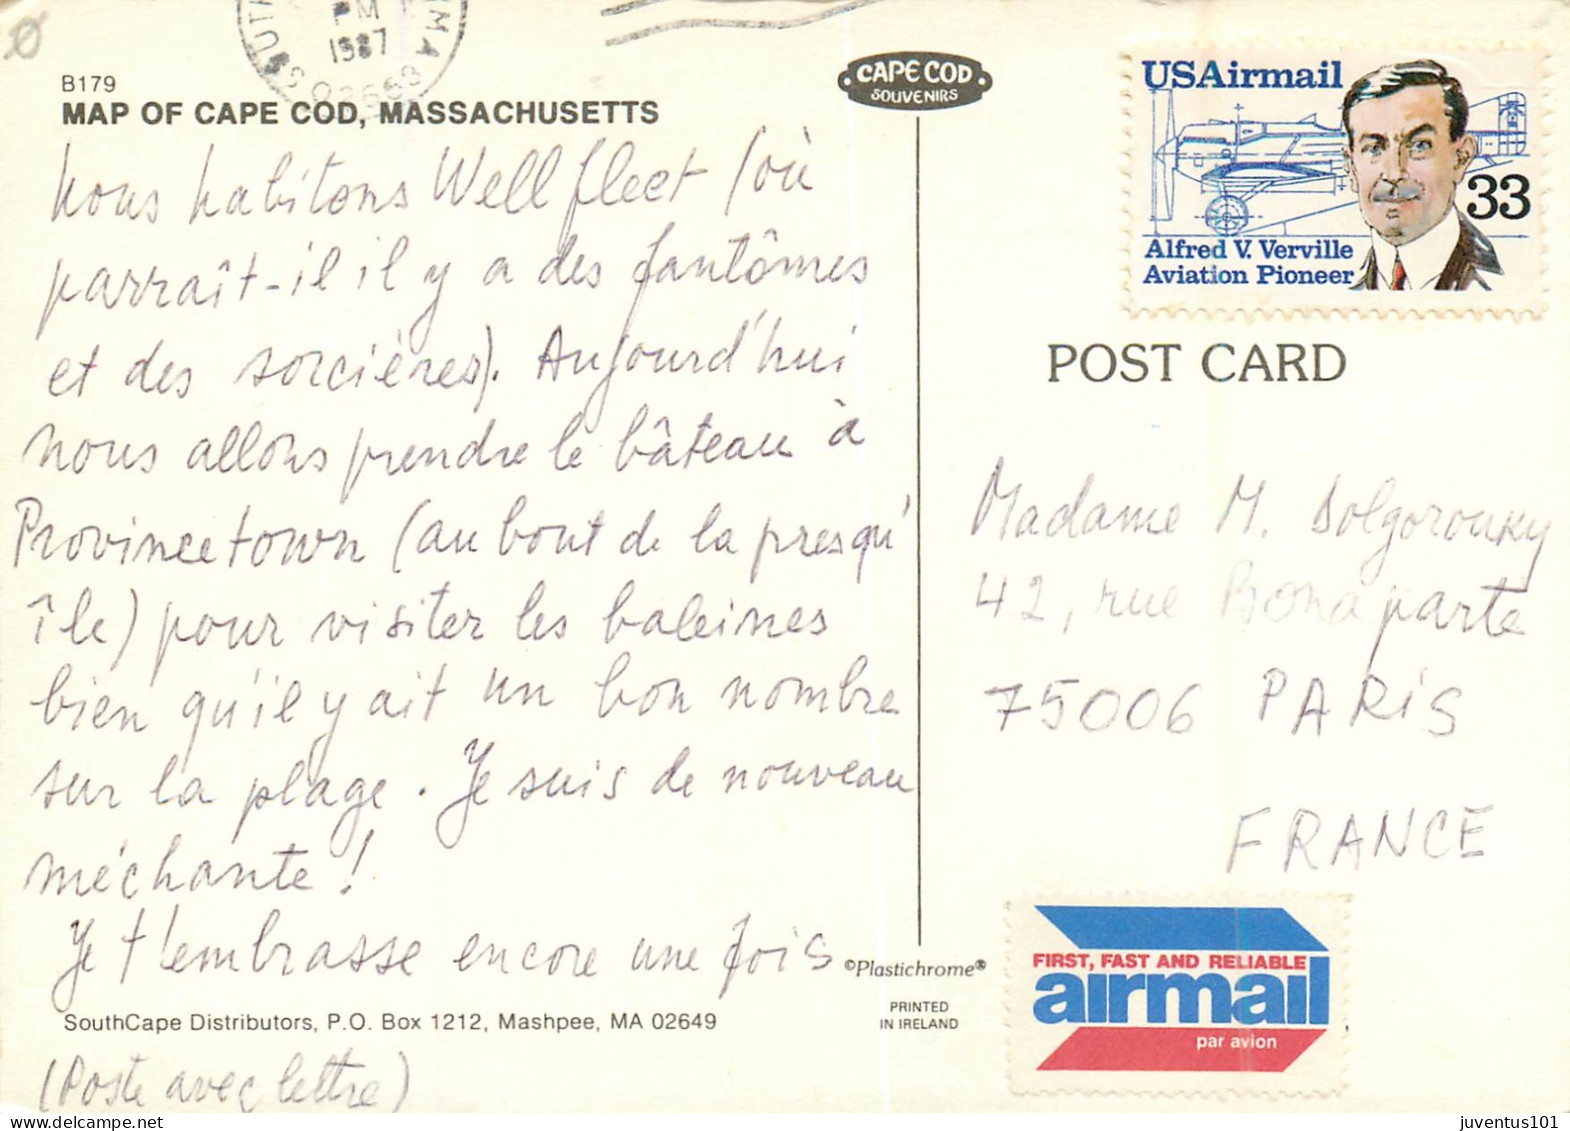 PM
1987
B179
MAP OF CAPE COD, MASSACHUSETTS
CAPE COD
SOUVENIRS
USAirmail
33
Alfred V. Verville
Aviation Pioneer
POST CARD
Nous habitons Wellfleet (où
parraît-il il y a des fantômes
et des sorcières). Aujourd'hui
nous allons prendre le bâteau à
Provincetown (au bout de la presqu'
île) pour visiter les baleines
bien qu'il y ait un bon nombre
sur la plage. Je suis de nouveau
méchante !
Je t'embrasse encore une fois
Madame M. Dolgorouky
42, rue Bonaparte
75006 PARIS
FRANCE
©Plastichrome®
PRINTED
IN IRELAND
FIRST, FAST AND RELIABLE
airmail
par avion
SouthCape Distributors, P.O. Box 1212, Mashpee, MA 02649
(Poste avec lettre)
juventus101